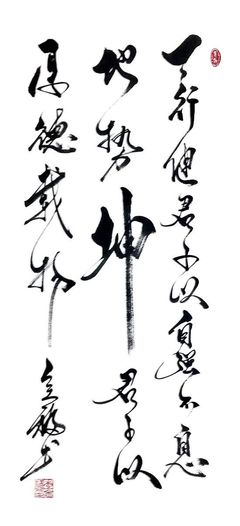 天行健君子以自强不息
地势坤君子以
厚德载物